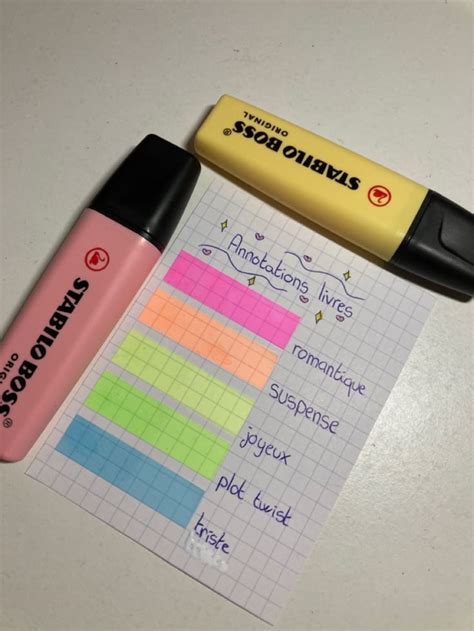 STABILO BOSS
ORIGINAL
STABILO BOSS
ORIGI
Annotations livres
romantique
suspense
joyeux
plot twist
triste